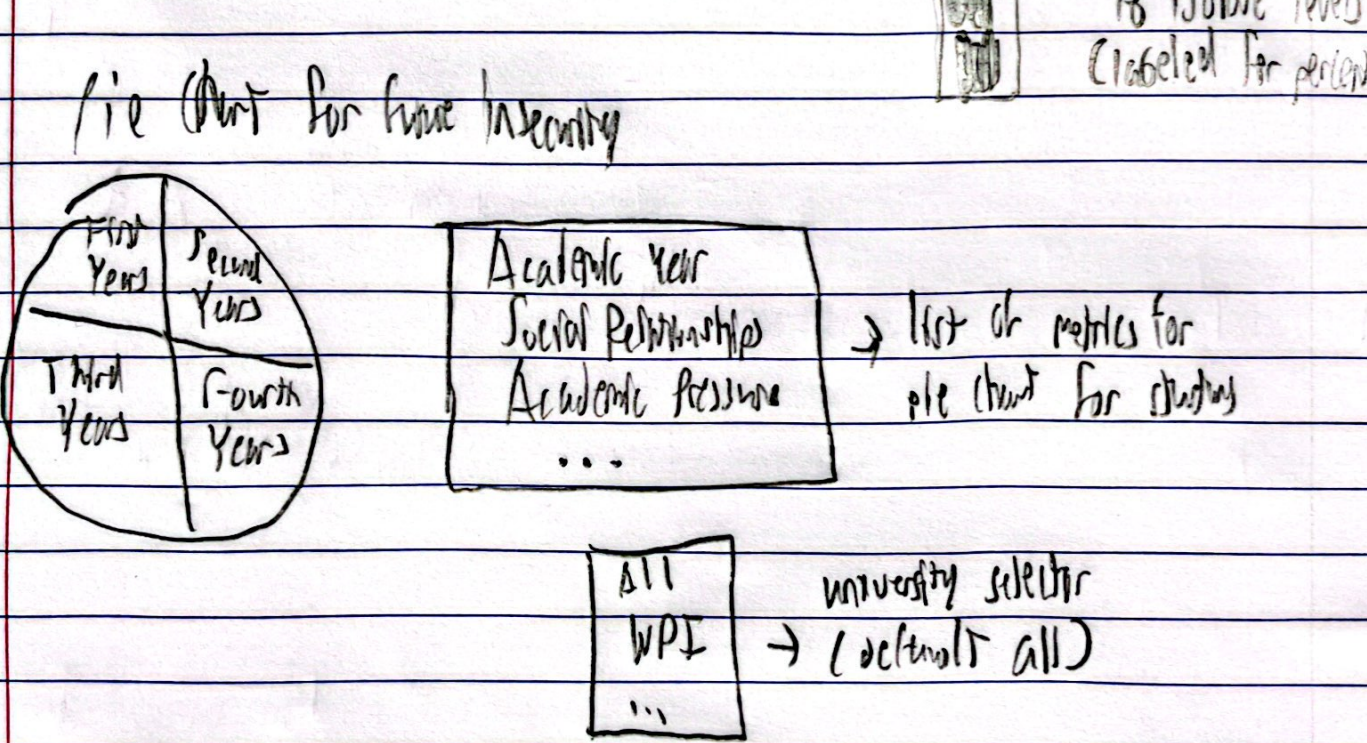 levels
(labeled for percent
Pie Chart for Future Insecurity
First
Years
Second
Years
Third
Years
Fourth
Years
Academic Year
Social Relationships
Academic Pressure
...
→ list of metrics for
pie chart for students
All
WPI
...
university selector
→ (default all)